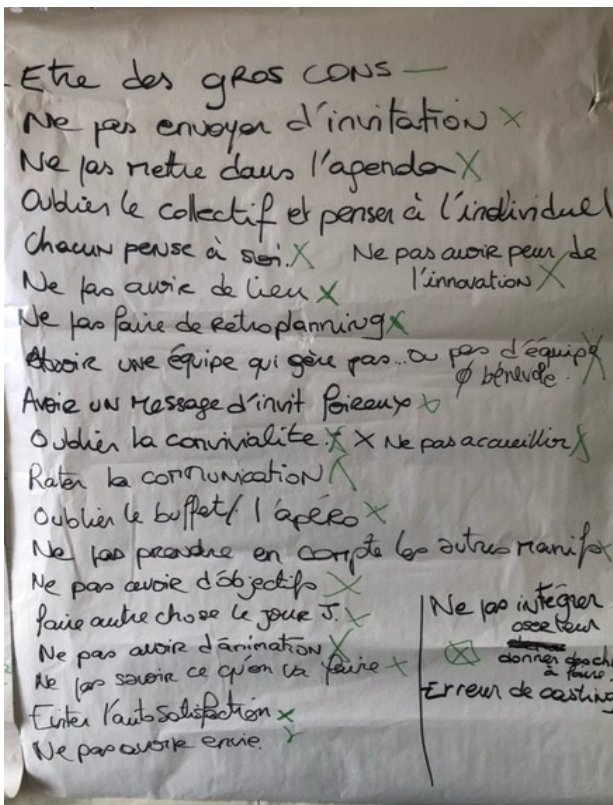 Etre des gros cons —
Ne pas envoyer d'invitation X
Ne pas metre dans l'agenda X
Oublier le collectif et penser à l'individuel
Chacun pense à soi. X
Ne pas avoir peur de
l'innovation X
Ne pas avoir de lieu X
Ne pas faire de Retroplanning X
Avoir une équipe qui gère pas... ou pas d'équipe X
ϕ bénevole.
Avoir un Message d'invit Poireaux
Oublier la convivialité X X Ne pas accueillir X
Rater la communication X
Oublier le buffet / l'apéro X
Ne pas prendre en compte les autres manifs X
Ne pas avoir d'objectifs X
faire autre chose le jour J. X
Ne pas avoir d'animation X
Ne pas savoir ce qu'on va faire X
Eviter l'auto satisfaction X
Ne pas avoir envie.
Ne pas intégrer
donner des
à faire.
Erreur de casting